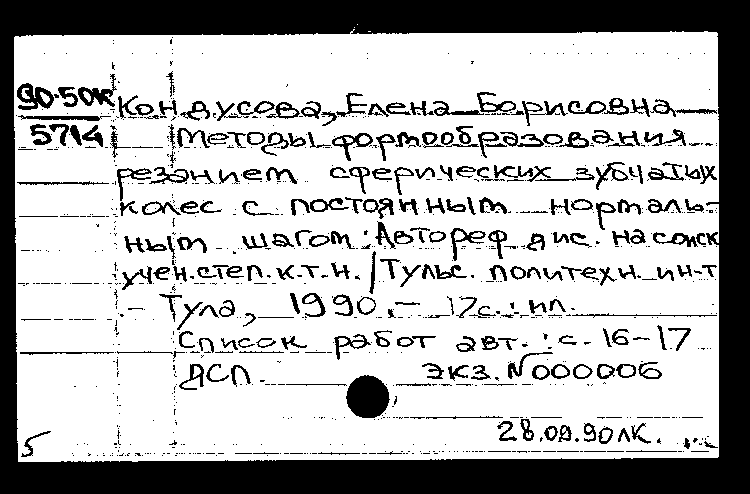 90-50К
5714
Кондусова, Елена Борисовна
Методы формообразования
резанием сферических зубчатых
колес с постоянным нормаль-
ным шагом: Автореф дис. на соиск
учен. степ. к.т.н. / Тульс. политехн. ин-т
.- Тула, 1990.- 17с.: ил.
Список работ авт.: с. 16-17
ДСП. экз. №000006
28.09.90ЛК.
5